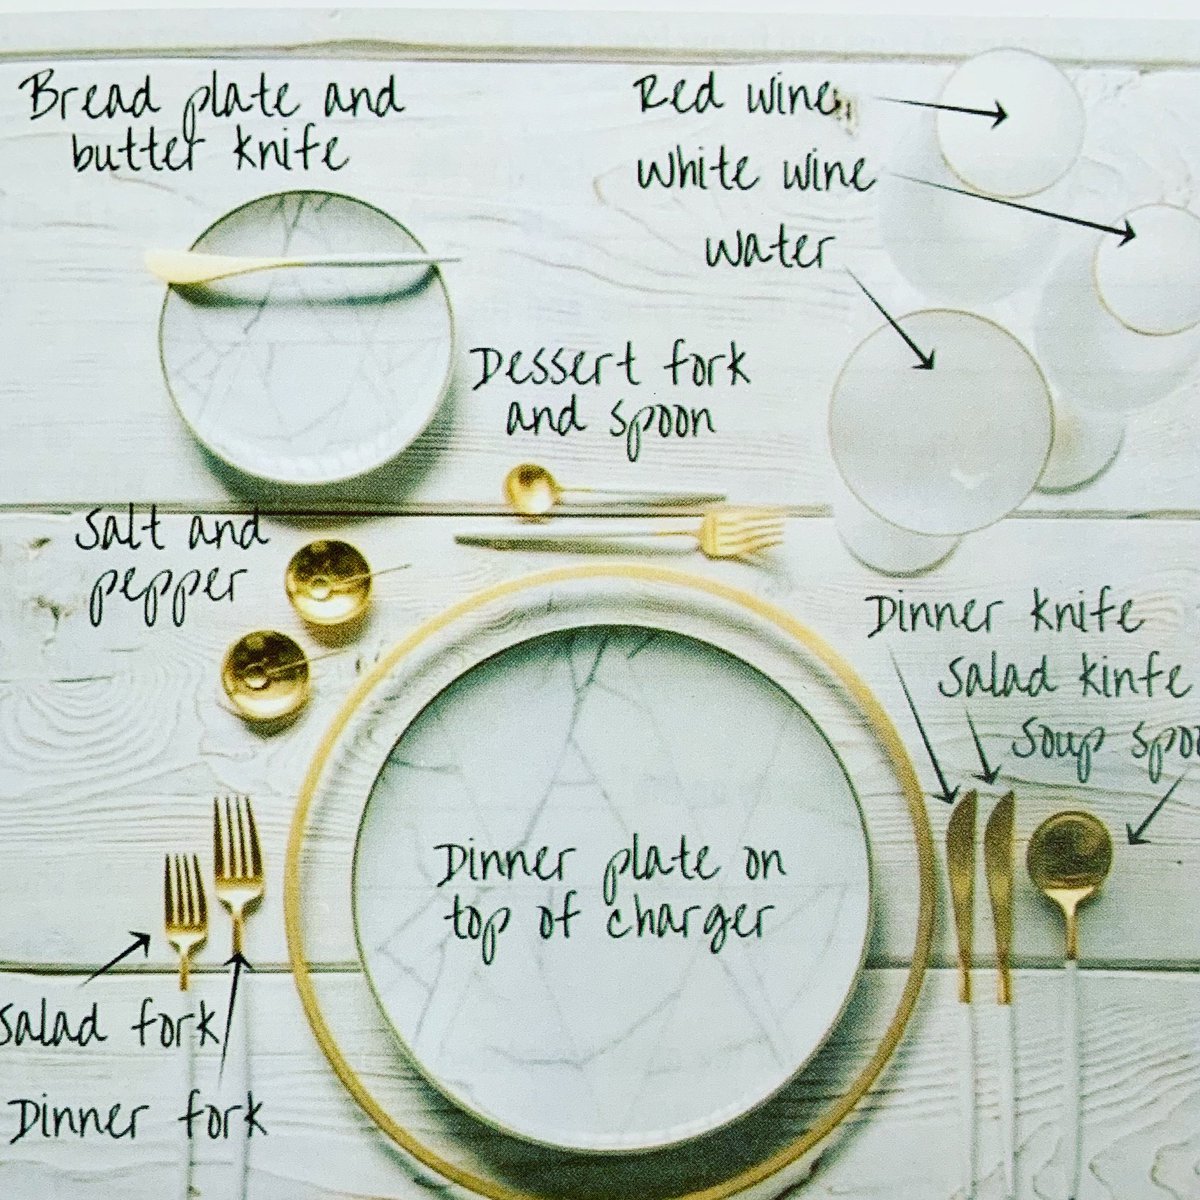 Bread plate and
butter knife
Red wine
White wine
Water
Dessert fork
and spoon
Salt and
pepper
Dinner knife
Salad kinfe
Soup spoo
Dinner plate on
top of charger
Salad fork
Dinner fork